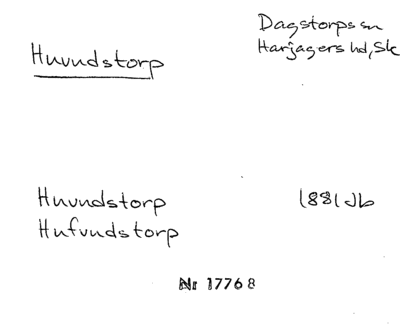 Dagstorps sn
Huvudstorp Harjagers hd, Sk
Huvudstorp 1881 Jb
Hufvudstorp
Nr 17768